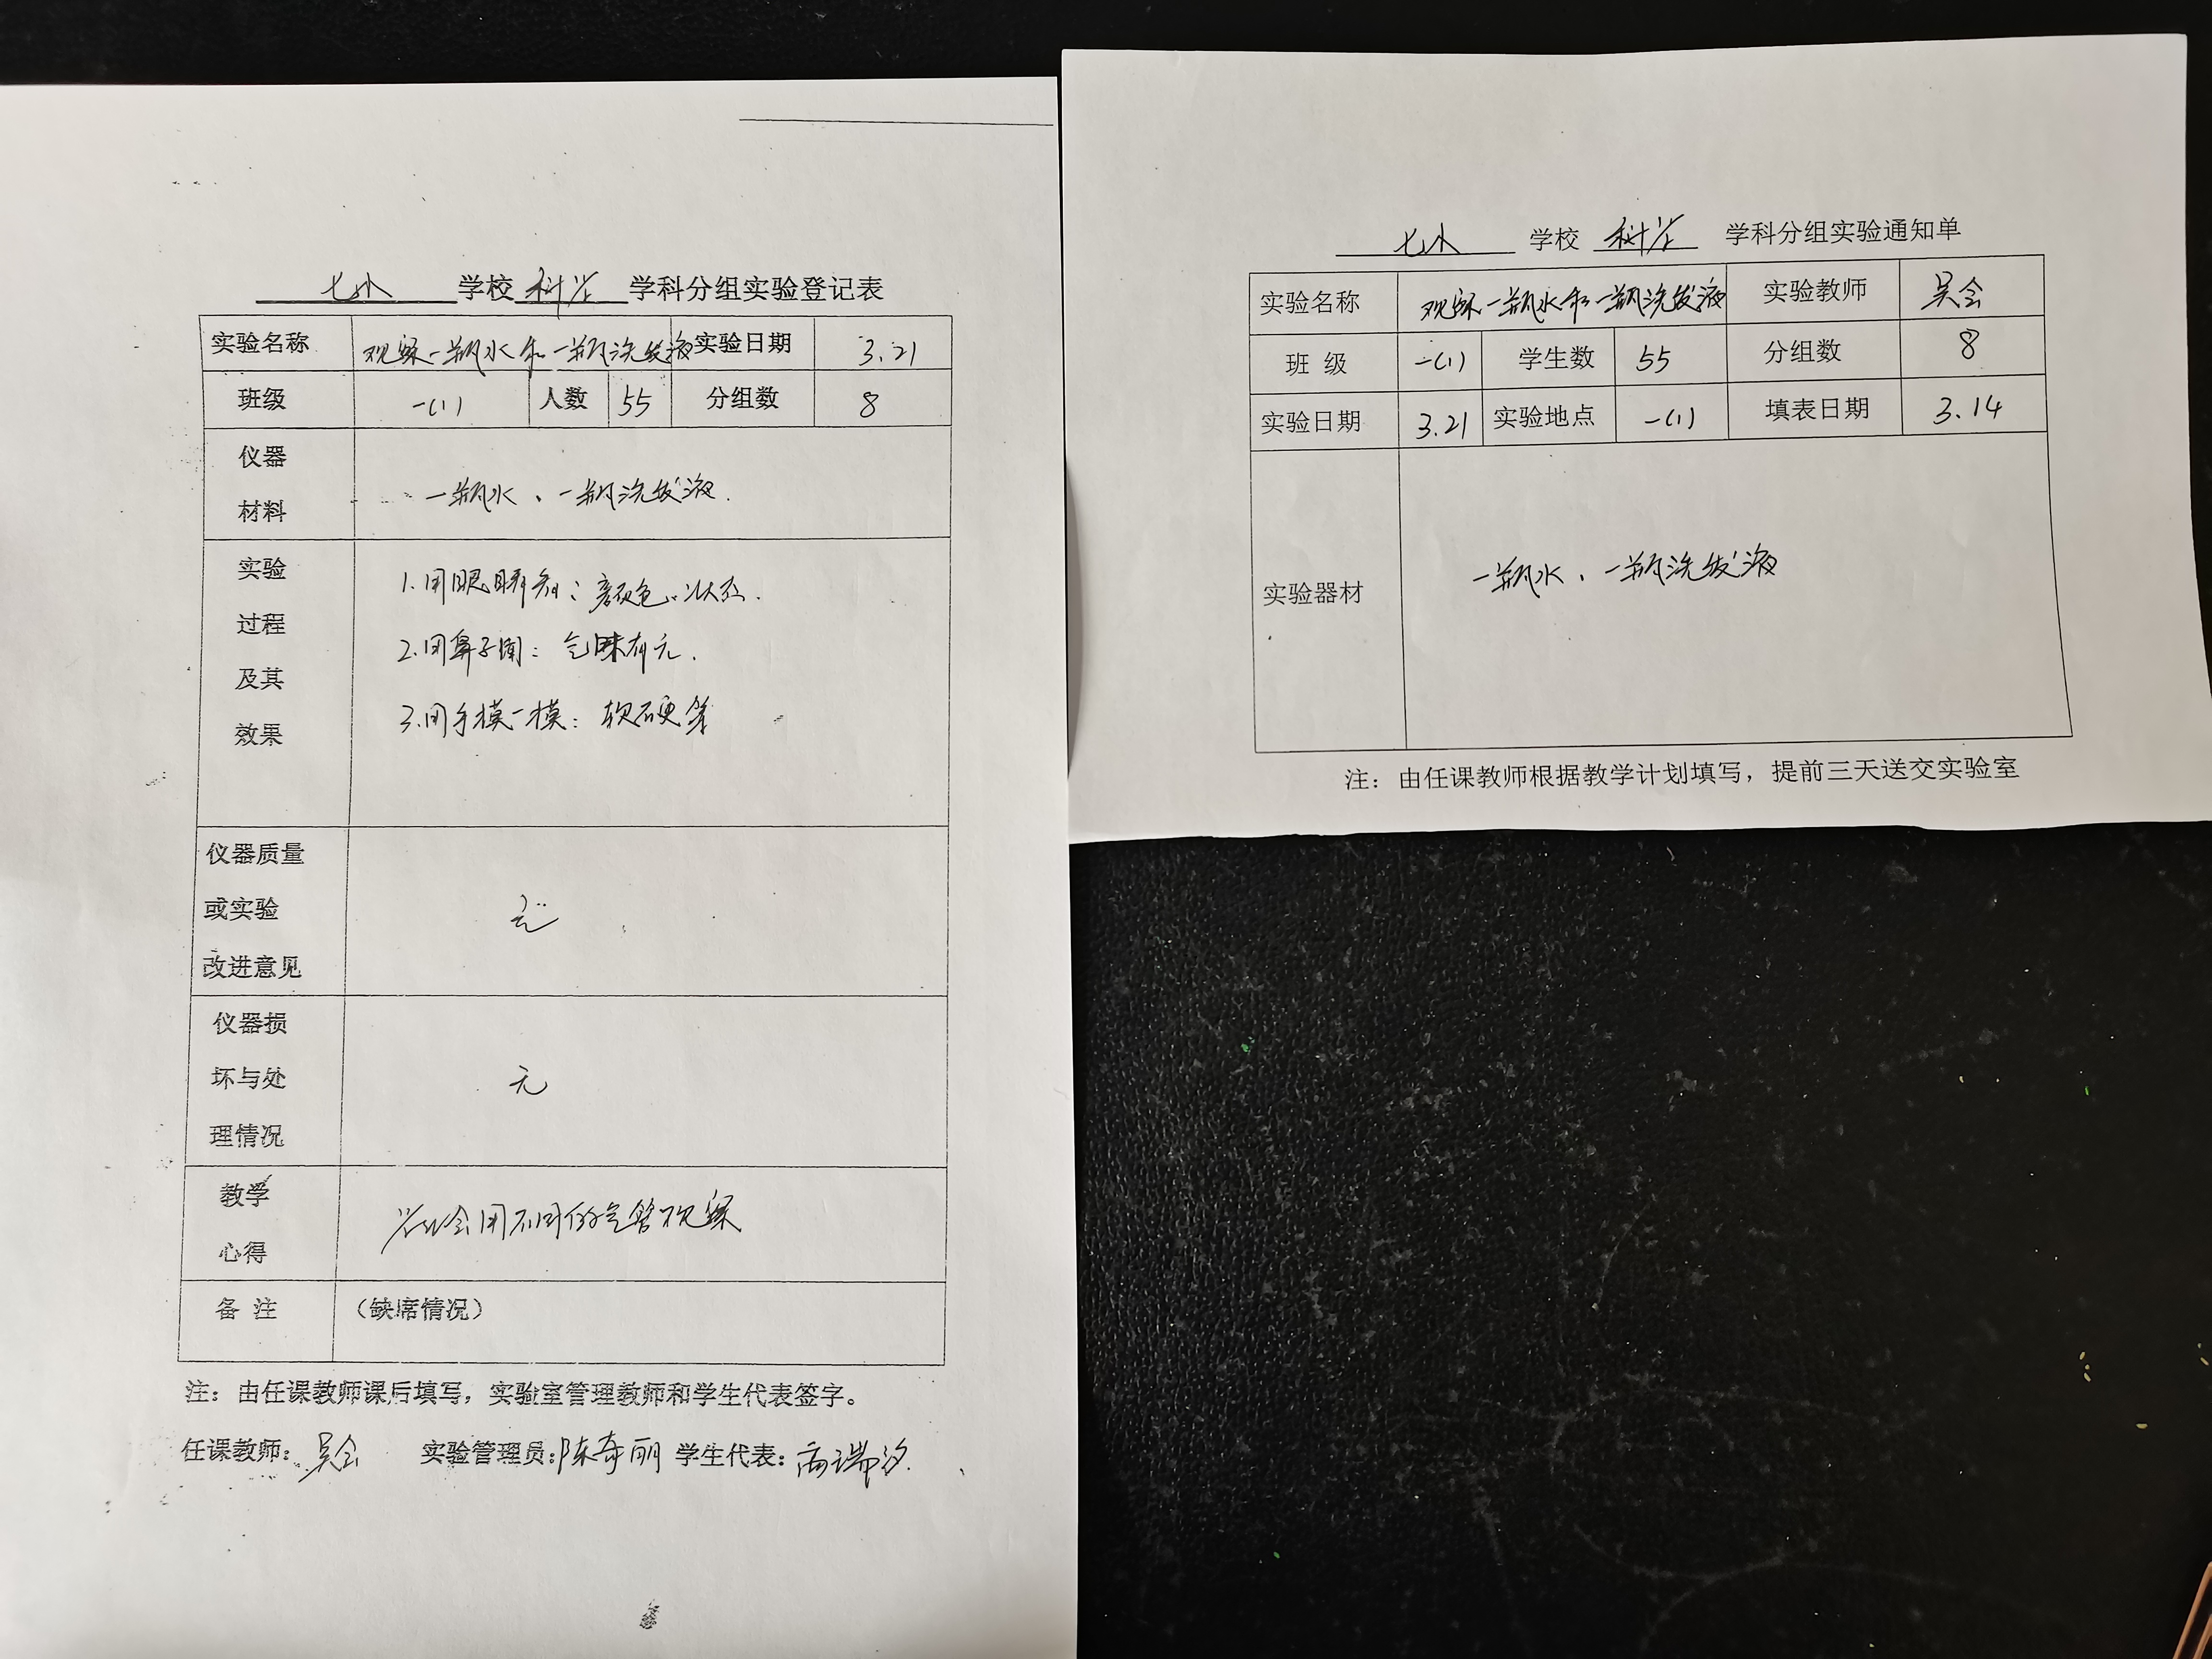 七小 学校 科学 学科分组实验登记表
实验名称 观察一瓶水和一瓶洗发液 实验日期 3.21
班级 一(1) 人数 55 分组数 8
仪器
材料
一瓶水、一瓶洗发液.
实验
过程
及其
效果
1.用眼睛看:颜色、状态.
2.用鼻子闻:气味有无.
3.用手摸一摸:软硬等
仪器质量
或实验
改进意见
无
仪器损
坏与处
理情况
无
教学
心得
学生会用不同的器官观察
备 注 （缺席情况）
注：由任课教师课后填写，实验室管理教师和学生代表签字。
任课教师：吴会 实验管理员：陈奇丽 学生代表：高瑞汐
七小 学校 科学 学科分组实验通知单
实验名称 观察一瓶水和一瓶洗发液 实验教师 吴会
班 级 一(1) 学生数 55 分组数 8
实验日期 3.21 实验地点 一(1) 填表日期 3.14
实验器材 一瓶水、一瓶洗发液
注：由任课教师根据教学计划填写，提前三天送交实验室